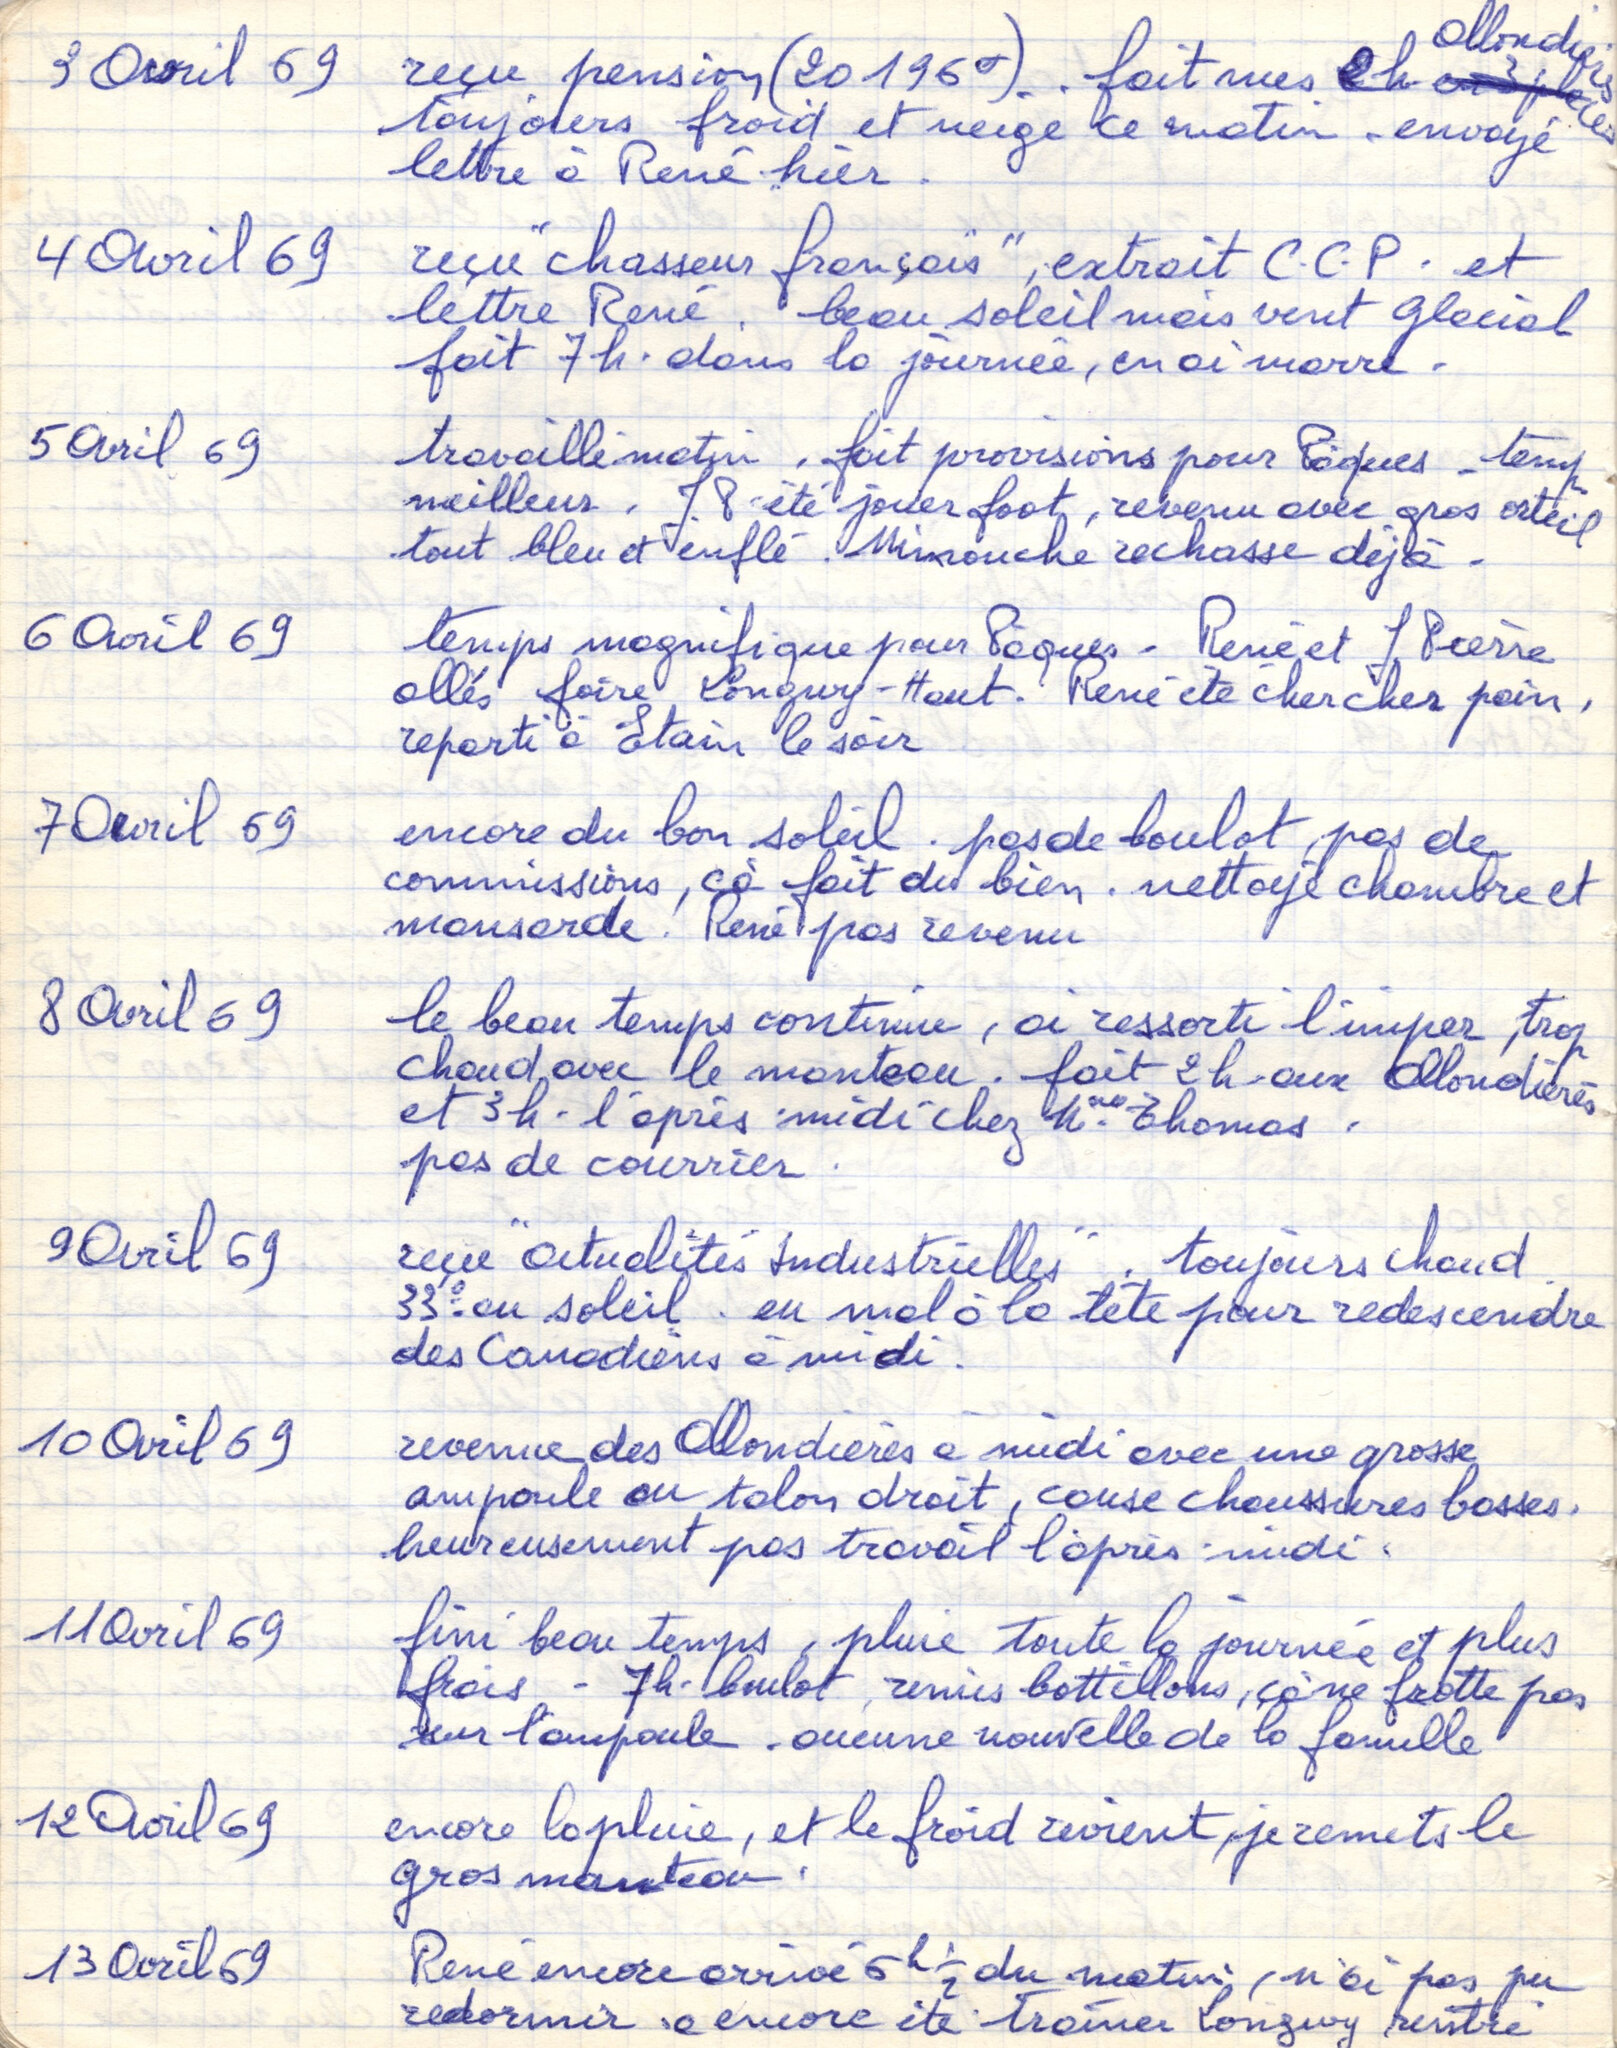 3 Avril 69 reçu pension (20196 f). fait mes 2 h Allondières
toujours froid et neige ce matin - envoyé
lettre à René hier.
4 Avril 69 reçu "chasseur français", extrait C.C.P. et
lettre René. beau soleil mais vent glacial
fait 7 h. dans la journée, en ai marre.
5 Avril 69 travaillé matin, fait provisions pour Pâques - temp
meilleur. J P été jouer foot, revenu avec gros orteil
tout bleu et enflé. Minouche rechasse déjà.
6 Avril 69 temps magnifique pour Pâques - René et J Pierre
allés foire Longwy-Haut. René été chercher pain,
reparti à Etain le soir
7 Avril 69 encore du bon soleil. pas de boulot, pas de
commissions, çà fait du bien. nettoyé chambre et
mansarde. René pas revenu
8 Avril 69 le beau temps continue, ai ressorti l'imper, trop
chaud avec le manteau. fait 2 h. aux Allondières
et 3 h. l'après-midi chez Mme Thomas.
pas de courrier.
9 Avril 69 reçu "Actualités Industrielles". toujours chaud.
33° au soleil. eu mal à la tête pour redescendre
des Canadiens à midi.
10 Avril 69 revenue des Allondières à midi avec une grosse
ampoule au talon droit, cause chaussures basses.
heureusement pas travail l'après-midi.
11 Avril 69 fini beau temps, pluie toute la journée et plus
frais - 7 h. boulot, remis bottillons, çà ne frotte pas
sur l'ampoule. aucune nouvelle de la famille
12 Avril 69 encore la pluie, et le froid revient, je remets le
gros manteau.
13 Avril 69 René encore arrivé 6 h ½ du matin, n'ai pas pu
redormir. a encore été traîner Longwy rentré